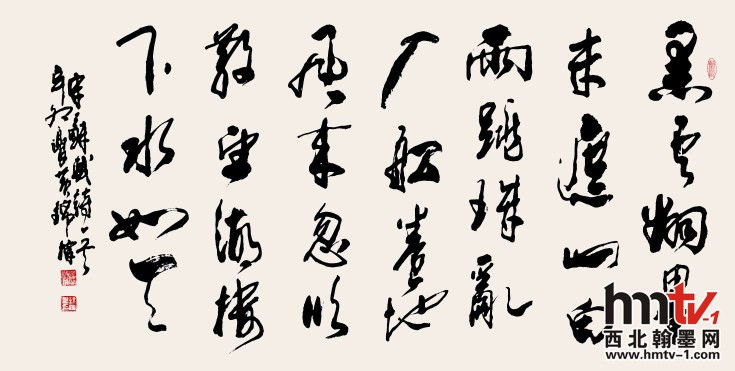 黑云翻墨
未遮山白
雨跳珠亂
入船卷地
風来忽吹
散望湖楼
下水如天
宋蘇軾詩一首
辛卯
hmtv-1
西北翰墨网
www.hmtv-1.com